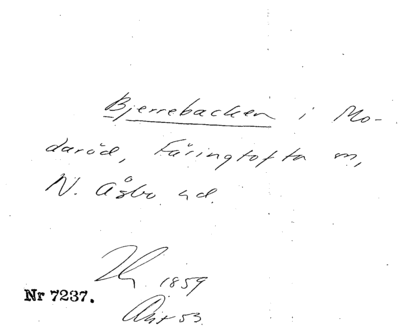 Bjerrebacken i Mo-
daröd, Färingtofta sn,
N. Åsbo hd.
1859
Nr 7237.
Akt 53